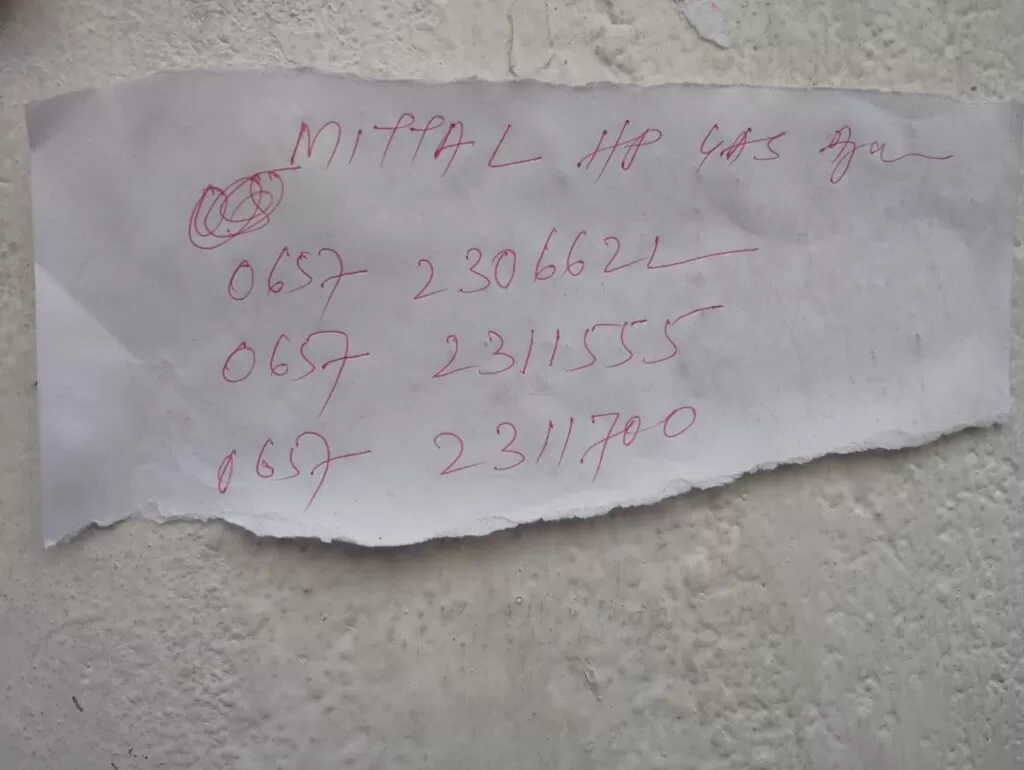 MITTAL HP GAS
0657 2306622
0657 2311555
0657 2311700